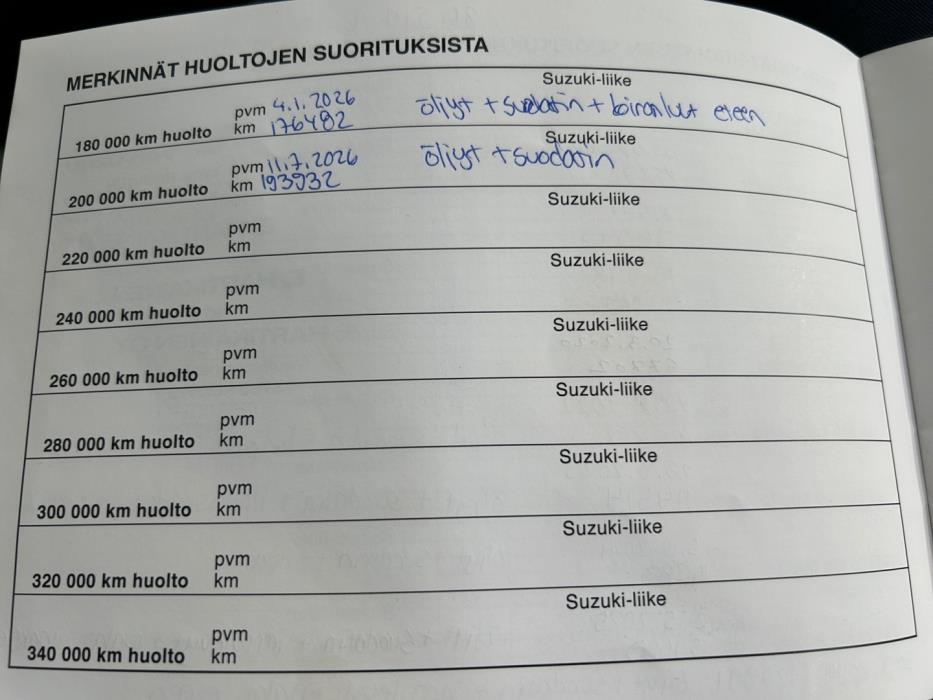 MERKINNÄT HUOLTOJEN SUORITUKSISTA
Suzuki-liike
180 000 km huolto pvm 4.1.2026 öljyt + suodatin + koiranluut eteen
km 176482
Suzuki-liike
200 000 km huolto pvm 11.7.2026 öljyt + suodatin
km 193932
Suzuki-liike
220 000 km huolto pvm
km
Suzuki-liike
240 000 km huolto pvm
km
Suzuki-liike
260 000 km huolto pvm
km
Suzuki-liike
280 000 km huolto pvm
km
Suzuki-liike
300 000 km huolto pvm
km
Suzuki-liike
320 000 km huolto pvm
km
Suzuki-liike
340 000 km huolto pvm
km